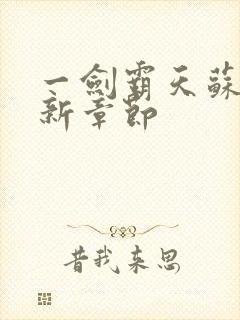 一劍霸天蘇
新章節
昔我来思